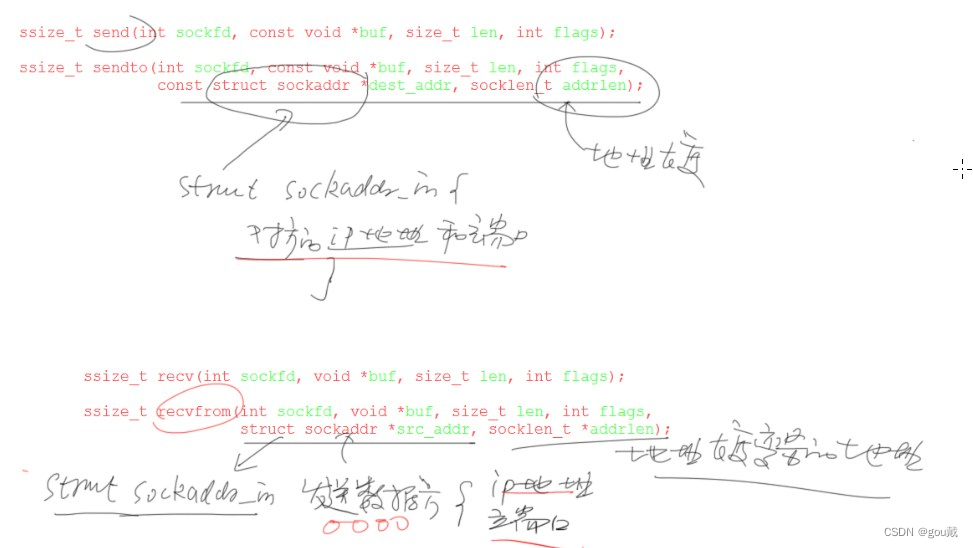 ssize_t send(int sockfd, const void *buf, size_t len, int flags);
ssize_t sendto(int sockfd, const void *buf, size_t len, int flags,
const struct sockaddr *dest_addr, socklen_t addrlen);
地址长度
struct sockaddr_in {
对方的ip地址和端口
}
ssize_t recv(int sockfd, void *buf, size_t len, int flags);
ssize_t recvfrom(int sockfd, void *buf, size_t len, int flags,
struct sockaddr *src_addr, socklen_t *addrlen);
地址长度变量的地址
struct sockaddr_in 发送数据方 { ip地址
端口
CSDN @gou藏